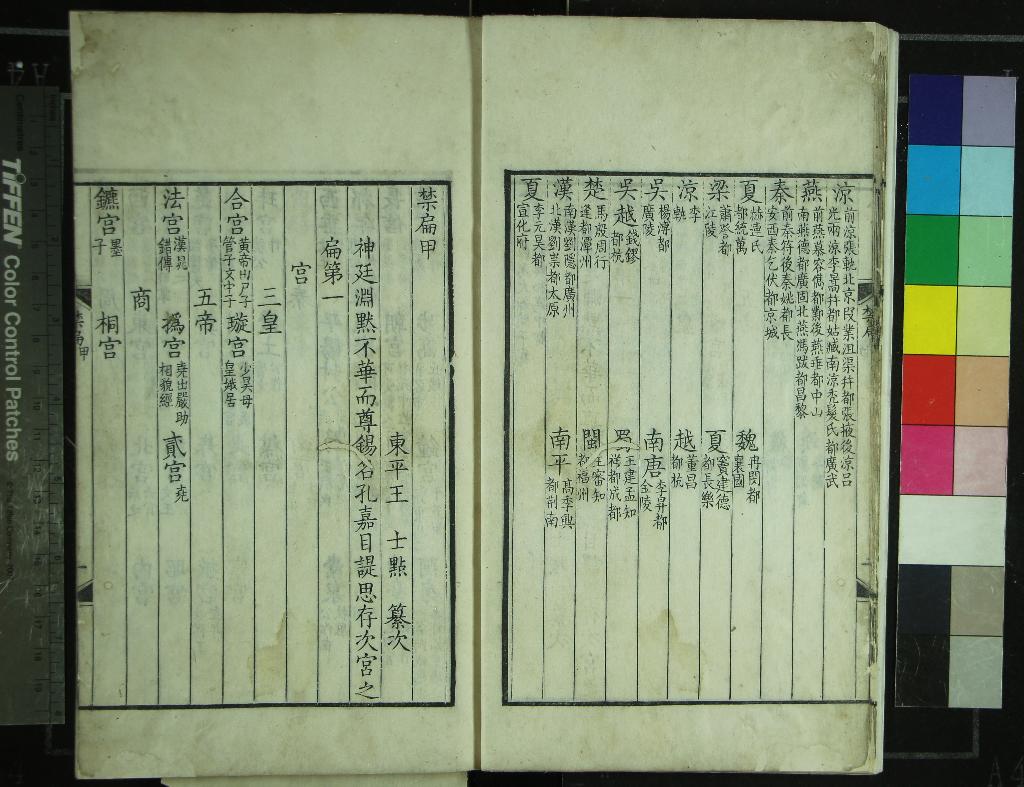 涼 前涼張軌北京段業沮渠幷都張掖後涼呂光南涼李暠幷都姑臧南涼禿髮氏都廣武
燕 前燕慕容儁都鄴後燕垂都中山南燕德都廣固北燕馮跋都昌黎
秦 前秦苻後秦姚都長安西秦乞伏都京城
夏 赫連氏都統萬 魏 冉閔都襄國
梁 蕭詧都江陵 夏 竇建德都長樂
涼 李軌 越 董昌都杭
吳 楊渥都廣陵 南唐 李昪都金陵
吳越 錢鏐都杭 蜀 王建孟知祥都成都
楚 馬殷周行逢都潭州 閩 王審知都福州
漢 南漢劉隱都廣州北漢劉崇都太原 南平 高季興都荆南
夏 李元昊都宣化府
禁扁甲
東平王 士點 纂次
神廷淵默不華而尊錫名孔嘉目諟思存次宮之
扁第一
宮
三皇
合宮 黃帝出尸子管子文中子 璇宮 少昊母皇娥居
五帝
法宮 漢晁錯傳 撝宮 堯出嚴助相貌經 貳宮 堯
商
鑣宮 墨子 桐宮
禁扁甲
TIFFEN Color Control Patches